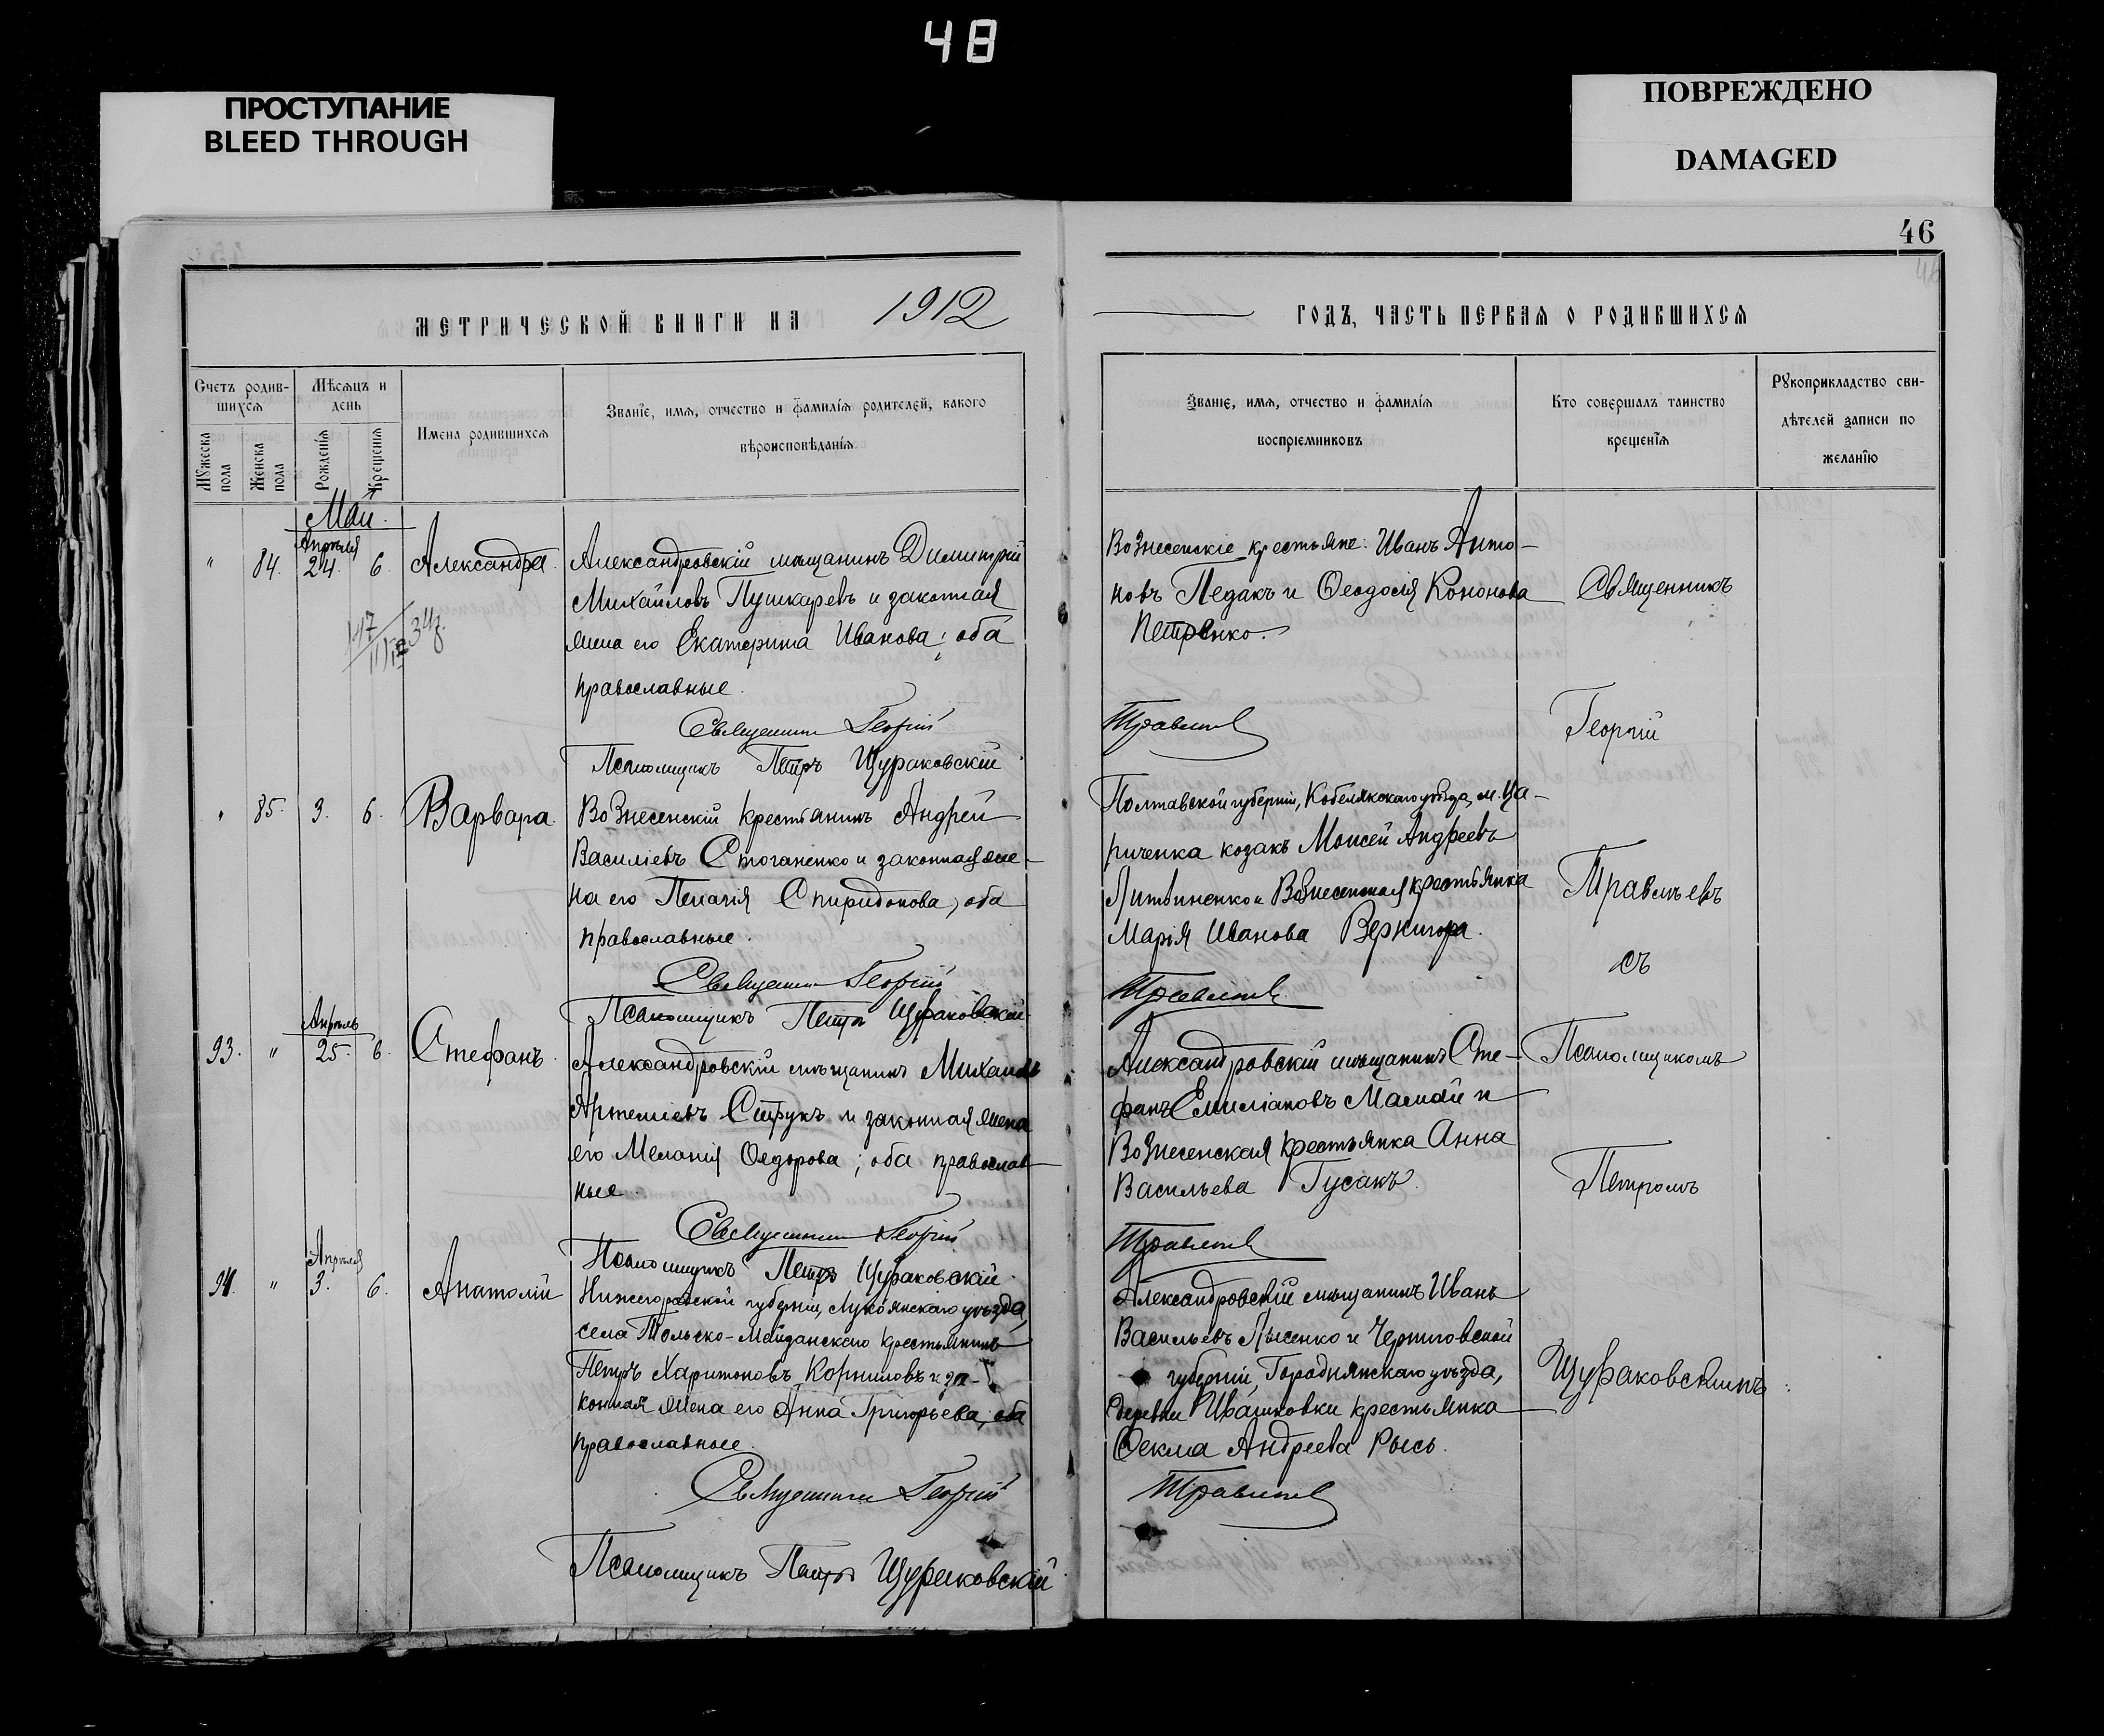 48
ПРОСТУПАНИЕ
BLEED THROUGH
ПОВРЕЖДЕНО
DAMAGED
46
МЕТРИЧЕСКОЙ КНИГИ НА 1912
ГОДЪ, ЧАСТЬ ПЕРВАЯ О РОДИВШИХСЯ
Счетъ родив-
шихся
Мужеска пола
Женска пола
Мѣсяцъ и
день
Рожденія
Крещенія
Имена родившихся
Званіе, имя, отчество и фамилія родителей, какого
вѣроисповѣданія
Званіе, имя, отчество и фамилія
воспріемниковъ
Кто совершалъ таинство
крещенія
Рукоприкладство сви-
дѣтелей записи по
желанію
Май.
Апрѣля
" 84. 24. 6. Александра.
Александровскій мѣщанинъ Димитрій
Михайловъ Пушкаревъ и законная
жена его Екатерина Иванова; оба
православные.
Священникъ Георгій
Псаломщикъ Петръ Щураковскій
" 85. 3. 6. Варвара.
Вознесенскій крестьянинъ Андрей
Василіевъ Стоганенко и законная же-
на его Пелагія Спиридонова, оба
православные.
Священникъ Георгій
Псаломщикъ Петръ Щураковскій
Апрѣль
93. " 25. 6. Стефанъ.
Александровскій мѣщанинъ Михаилъ
Артеміевъ Струкъ и законная жена
его Меланія Ѳедорова; оба православ-
ные.
Священникъ Георгій
Псаломщикъ Петръ Щураковскій.
Апрѣля
94. " 3. 6. Анатолій
Нижегородской губерніи, Лукоянскаго уѣзда,
села Польско-Майданскаго крестьянинъ
Петръ Харитоновъ Корниловъ и за-
конная жена его Анна Григорьева, оба
православные.
Священникъ Георгій
Псаломщикъ Петръ Щураковскій
Вознесенскіе крестьяне: Иванъ Анто-
новъ Педакъ и Ѳеодосія Кононова
Петренко.
Травлѣевъ
Полтавской губерніи, Кобелякскаго уѣзда, м. Ца-
риченка козакъ Моисей Андреевъ
Литвиненко и Вознесенская крестьянка
Марія Иванова Вернигора.
Травлѣевъ
Александровскій мѣщанинъ Сте-
фанъ Емиліановъ Мамай и
Вознесенская крестьянка Анна
Васильева Гусакъ.
Травлѣевъ
Александровскій мѣщанинъ Иванъ
Васильевъ Лысенко и Черниговской
губерніи, Городнянскаго уѣзда,
деревни Ивашковки крестьянка
Ѳекла Андреева Рысь.
Травлѣевъ
Священникъ
Георгій
Травлѣевъ
съ
Псаломщикомъ
Петромъ
Щураковскимъ.